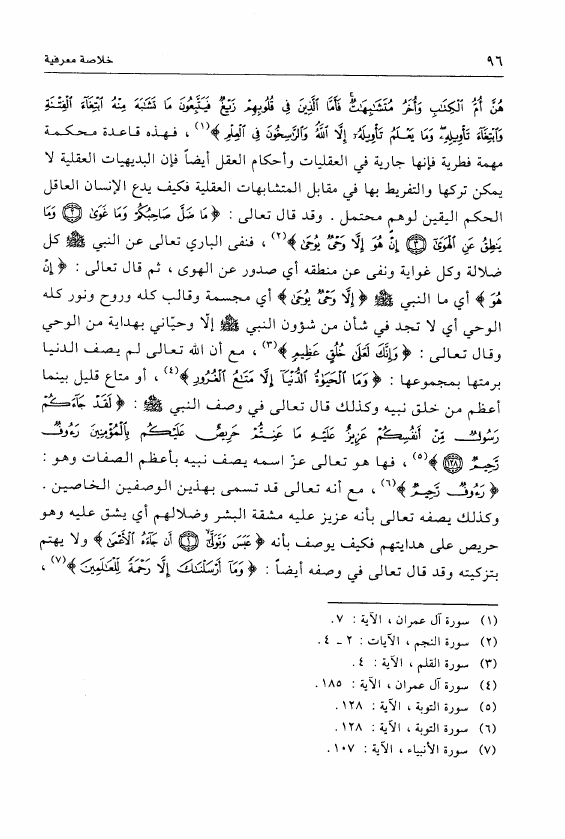 ٩٦ خلاصة معرفية
هُنَّ أُمُّ ٱلْكِتَٰبِ وَأُخَرُ مُتَشَٰبِهَٰتٌ ۖ فَأَمَّا ٱلَّذِينَ فِى قُلُوبِهِمْ زَيْغٌ فَيَتَّبِعُونَ مَا تَشَٰبَهَ مِنْهُ ٱبْتِغَآءَ ٱلْفِتْنَةِ
وَٱبْتِغَآءَ تَأْوِيلِهِۦ ۗ وَمَا يَعْلَمُ تَأْوِيلَهُۥٓ إِلَّا ٱللَّهُ وَٱلرَّٰسِخُونَ فِى ٱلْعِلْمِ ﴾(١) ، فـهـذه قـاعـدة مـحـكـمـة
مهمة فطرية فإنها جارية في العقليات وأحكام العقل أيضاً فإن البديهيات العقلية لا
يمكن تركها والتفريط بها في مقابل المتشابهات العقلية فكيف يدع الإنسان العاقل
الحكم اليقين لوهم محتمل . وقد قال تعالى : ﴿ مَا ضَلَّ صَاحِبُكُمْ وَمَا غَوَىٰ ۝٢ وَمَا
يَنطِقُ عَنِ ٱلْهَوَىٰٓ ۝٣ إِنْ هُوَ إِلَّا وَحْىٌ يُوحَىٰ ﴾(٢) ، فنفى الباري تعالى عن النبي ﷺ كل
ضلالة وكل غواية ونفى عن منطقه أي صدور عن الهوى ، ثم قال تعالى : ﴿ إِنْ
هُوَ ﴾ أي ما النبي ﷺ ﴿ إِلَّا وَحْىٌ يُوحَىٰ ﴾ أي مجسمة وقالب كله وروح ونور كله
الوحي أي لا تجد في شأن من شؤون النبي ﷺ إلّا وحيّاني بهداية من الوحي
وقال تعالى : ﴿ وَإِنَّكَ لَعَلَىٰ خُلُقٍ عَظِيمٍ ﴾(٣) ، مع أن الله تعالى لم يصف الدنيا
برمتها بمجموعها : ﴿ وَمَا ٱلْحَيَوٰةُ ٱلدُّنْيَآ إِلَّا مَتَٰعُ ٱلْغُرُورِ ﴾(٤) ، أو متاع قليل بينما
أعظم من خلق نبيه وكذلك قال تعالى في وصف النبي ﷺ : ﴿ لَقَدْ جَآءَكُمْ
رَسُولٌ مِّنْ أَنفُسِكُمْ عَزِيزٌ عَلَيْهِ مَا عَنِتُّمْ حَرِيصٌ عَلَيْكُم بِٱلْمُؤْمِنِينَ رَءُوفٌ
رَّحِيمٌ ۝١٢٨ ﴾(٥) ، فها هو تعالى عزّ اسمه يصف نبيه بأعظم الصفات وهو :
﴿ رَءُوفٌ رَّحِيمٌ ﴾(٦) ، مع أنه تعالى قد تسمى بهذين الوصفين الخاصين .
وكذلك يصفه تعالى بأنه عزيز عليه مشقة البشر وضلالهم أي يشق عليه وهو
حريص على هدايتهم فكيف يوصف بأنه ﴿ عَبَسَ وَتَوَلَّىٰٓ ۝١ أَن جَآءَهُ ٱلْأَعْمَىٰ ﴾ ولا يهتم
بتزكيته وقد قال تعالى في وصفه أيضاً : ﴿ وَمَآ أَرْسَلْنَٰكَ إِلَّا رَحْمَةً لِّلْعَٰلَمِينَ ﴾(٧) ،
(١) سورة آل عمران ، الآية : ٧.
(٢) سورة النجم ، الآيات : ٢ ـ ٤.
(٣) سورة القلم ، الآية : ٤.
(٤) سورة آل عمران ، الآية : ١٨٥.
(٥) سورة التوبة ، الآية : ١٢٨.
(٦) سورة التوبة ، الآية : ١٢٨.
(٧) سورة الأنبياء ، الآية : ١٠٧.